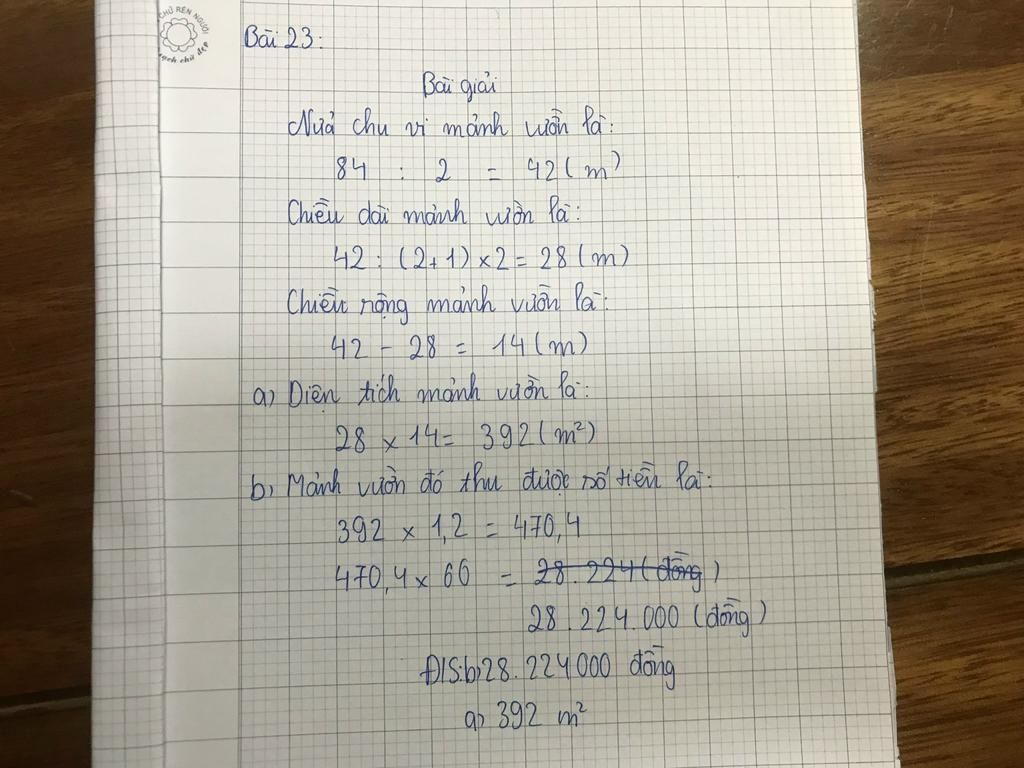 CHỮ RÈN NGƯỜI
sạch chữ đẹp
Bài 23:
Bài giải
Nửa chu vi mảnh vườn là:
84 : 2 = 42 (m)
Chiều dài mảnh vườn là:
42 : (2+1) × 2 = 28 (m)
Chiều rộng mảnh vườn là:
42 - 28 = 14 (m)
a) Diện tích mảnh vườn là:
28 × 14 = 392 (m²)
b) Mảnh vườn đó thu được số tiền là:
392 × 1,2 = 470,4
470,4 × 60 = 28.224 (đồng)
28.224.000 (đồng)
Đ/S: b) 28.224000 đồng
a) 392 m²